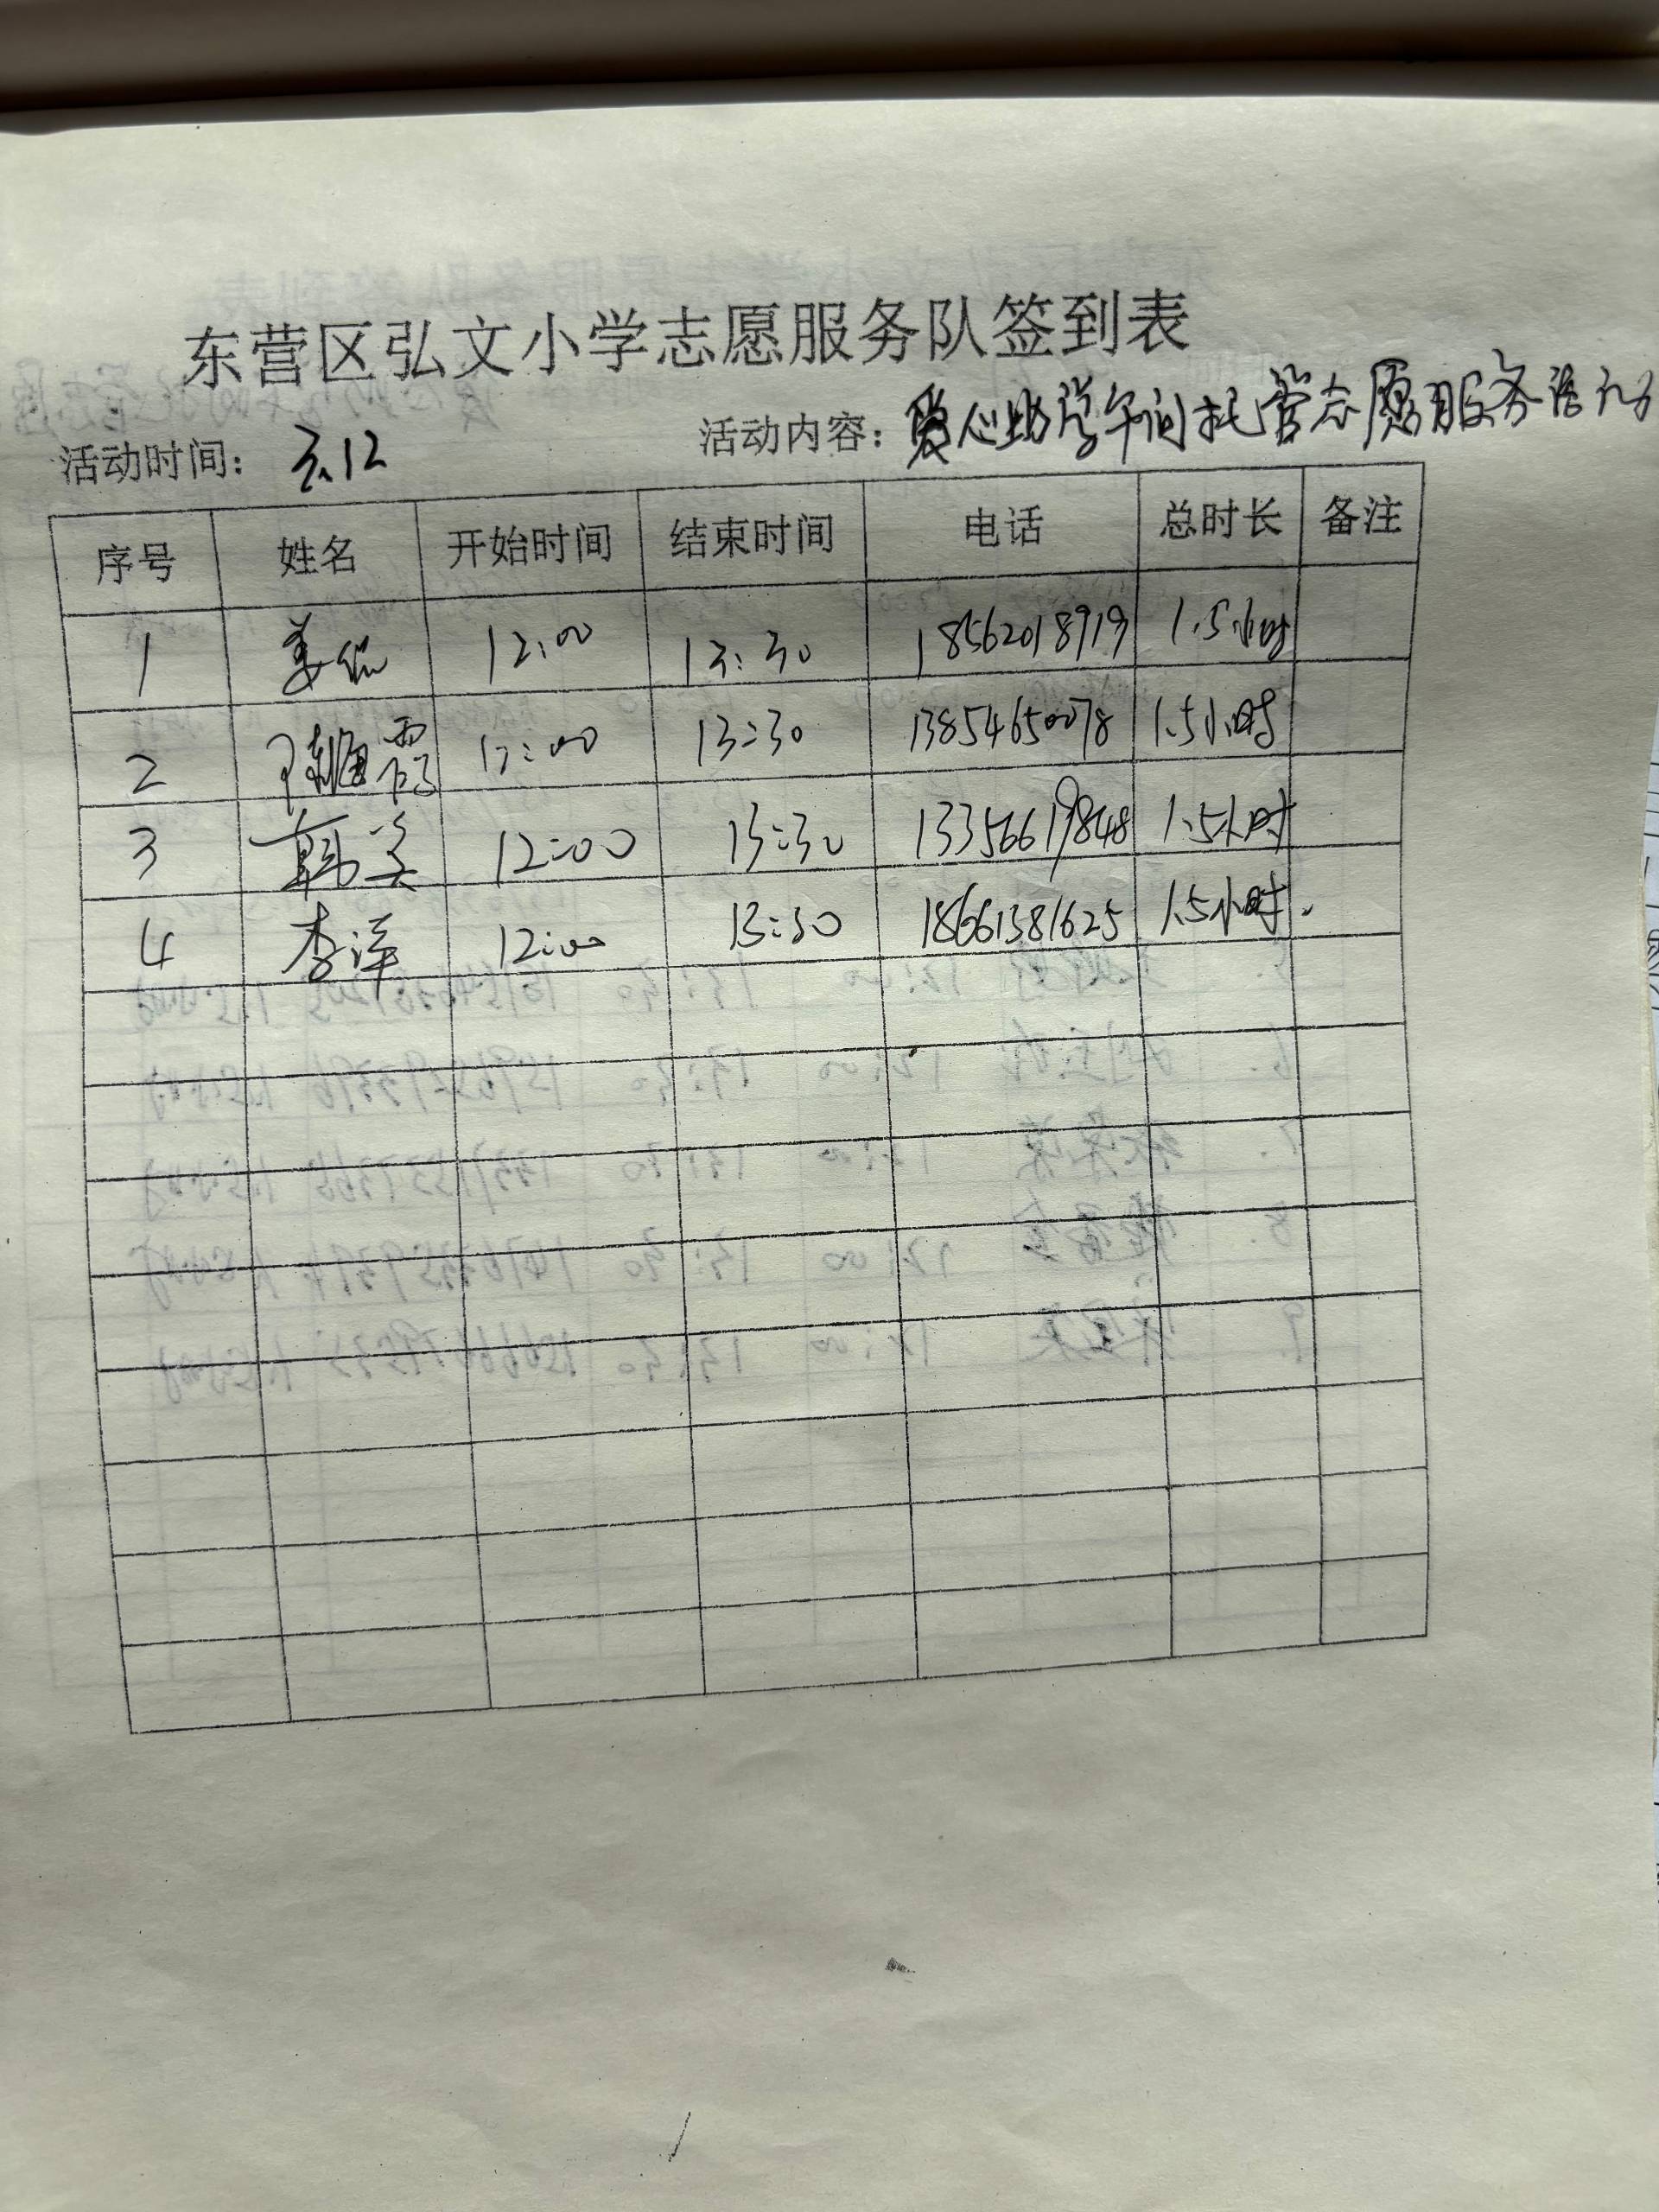 东营区弘文小学志愿服务队签到表
活动时间: 3.12 活动内容: 爱心助学午间托管志愿服务活动
序号 姓名 开始时间 结束时间 电话 总时长 备注
1 姜 12:00 13:30 18562018919 1.5小时
2 陈 12:00 13:30 13854650078 1.5小时
3 韩 12:00 13:30 13356619848 1.5小时
4 李洋 12:00 13:30 18661381625 1.5小时.